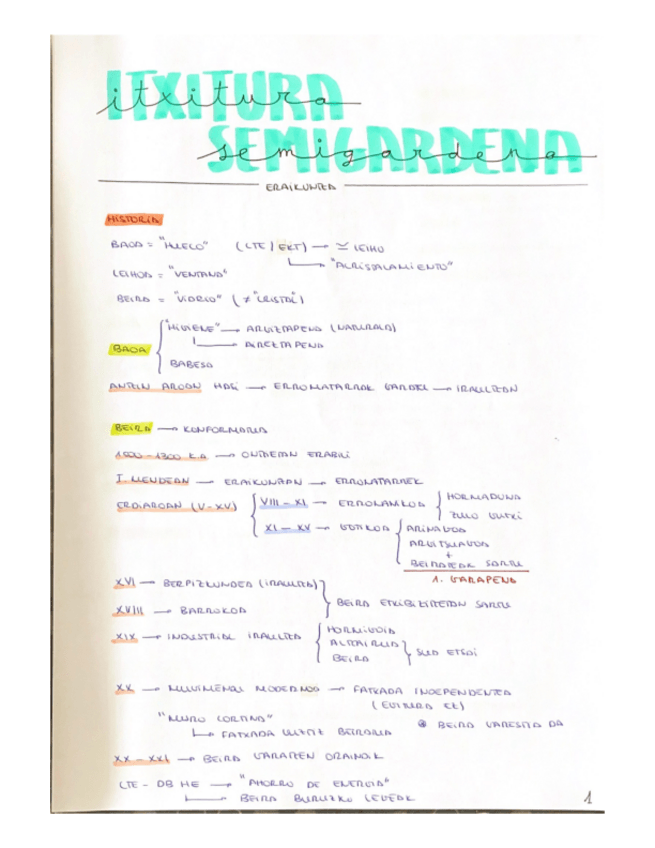 ITXITURA
itxitura
SEMIGARDENA
semigardena
ERAIKUNTZA
HISTORIA
BAOA = "HUECO" (CTE | EKT) → ≃ LEIHO
↳ "ACRISTALAMIENTO"
LEIHOA = "VENTANA"
BEIRA = "VIDRIO" (≠ "CRISTAL")
BAOA
"HIGIENE" → ARGIZTAPENA (NATURALA)
↳ AIREZTAPENA
BABESA
ANTZIN AROAN HASI → ERROMATARRAK GARATU → IRAULTZAN
BEIRA → KONFORMAZIOA
1500-1300 K.A. → ONTZIETAN ERABILI
I. MENDEAN → ERAIKUNTZAN → ERROMATARREK
ERDIAROAN (V-XV)
VIII-XI → ERROMANIKOA
HORMADUNA
ZULO GUTXI
XI-XV → GOTIKOA
ARINAGOA
ARGITSUAGOA
+
BEIRATEAK SARTU
1. GARAPENA
XVI → BERPIZKUNDEA (IRAULTZA)
XVIII → BARROKOA
BEIRA ETXEBIZITZETAN SARTU
XIX → INDUSTRIAL IRAULTZA
HORMIGOIA
ALTZAIRUA
BEIRA
SUA ETSAI
XX → MUGIMENDU MODERNOA → FATXADA INDEPENDENTEA
(EGITURA EZ)
"MURO CORTINA"
↳ FATXADA GUZTIZ BEIRAZKOA
⊛ BEIRA GARESTIA DA
XX-XXI → BEIRA GARATZEN ORAINDIK
CTE - DB HE → "AHORRO DE ENERGIA"
↳ BEIRA BURUZKO LEGEAK
1